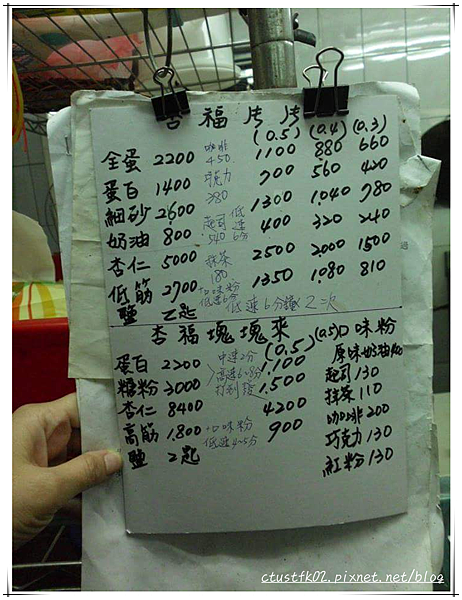 杏福片片
(0.5) (0.4) (0.3)
全蛋 2200 咖啡 450 1100 880 660
蛋白 1400 巧克力 380 700 560 420
細砂 2600 1300 1040 780
奶油 800 起司 540 低速 6分 400 320 240
杏仁 5000 抹茶 180 2500 2000 1500
低筋 2700 +口味粉 低速6分 1350 1080 810
鹽 乙匙 低速6分鐘 乙次
杏福塊塊來
(0.5) (0.5)口味粉
蛋白 2200 中速2分 1,100 原味奶油
糖粉 3000 高速6~8分 1,500 起司 130
杏仁 8400 打到發 4200 抹茶 110
高筋 1,800 +口味粉 低速4~5分 900 咖啡 200
鹽 乙匙 巧克力 130
紅粉 130
ctustfk02.pixnet.net/blog